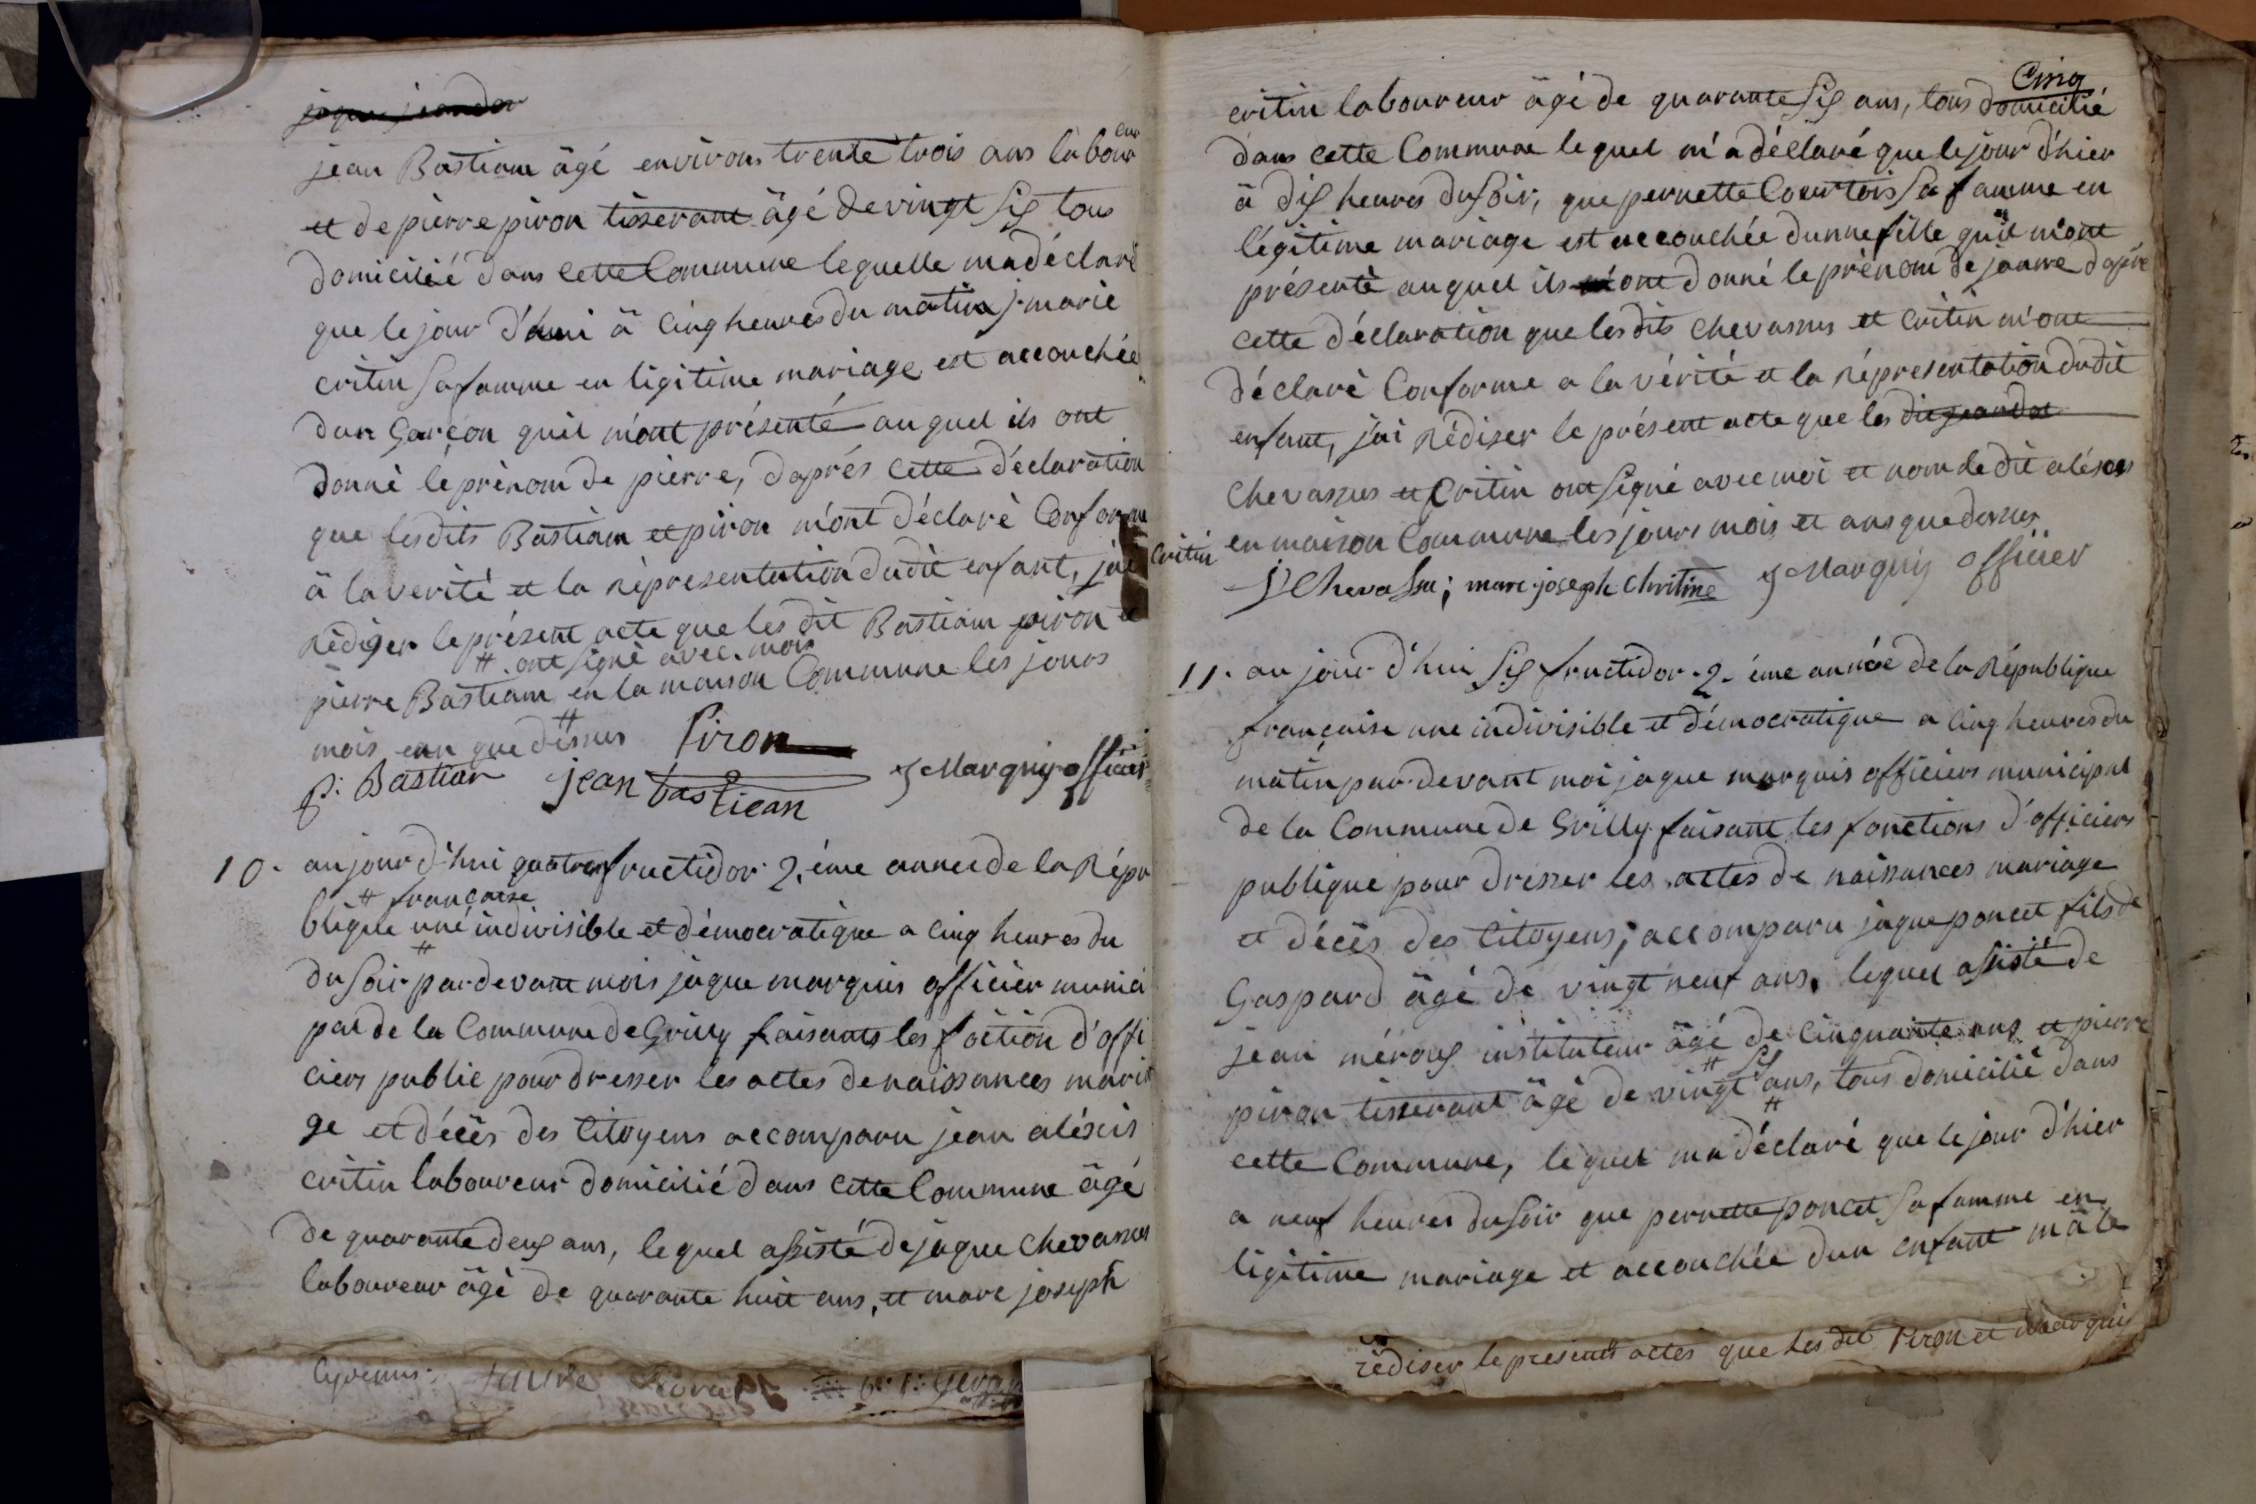 jean Bastiam âgé environs trente trois ans laboureur
et de pierre piron tisserant âgé de vingt six tous
domicilié dans cette Commune lequelle ma déclaré
que le jour d'hui â Cinq heures du matin j. marie
critin sa famme en ligitime mariage est accouchée
dun Garçon quil m'ont présenté auquel ils ont
donné le prènom de pierre, daprés cette déclaration
que les dits Bastiam et piron m'ont déclaré Conforme
â la verité et la répresentation dudit enfant, jai
rédiger le présent acte que les dit Bastiam piron et
# ont signé avec moi
pierre Bastiam en la maison Commune les jours
mois ean que dessus # Piron
p: Bastian jean bastiean J Marquis officier
10. aujourd'hui quatre fructidor 2. éme anneé de la Répu
# francaise
blique une indivisible et démocratique a Cinq heures du
du soir par devant mois jaque marquis officier munici
pal de la Commune de Grilly faisants les foction d'offi
ciers public pour dresser les actes de naissances maria
ge et décès des Citoyens accomparu jean aléxis
critin laboureur domicilié dans cette Commune âgé
de quarante deux ans, lequel assisté de jaque chevassus
laboureur âgé de quarante huit ans, et marc joseph
faure
Cinq
critin laboureur âgé de quarante six ans, tous domicilié
dans cette Commune lequel m'a déclaré que le jour d'hier
â dix heures du soir, que pernette Courtois sa famme en
légitime mariage est accouchée dunne fille quil m'ont
présenté auquel ils m'ont donné le prènom de janne daprè
cette déclaration que les dits chevassus et critin m'ont
déclaré Conforme a la vérité et la réprésentation dudit
enfant, j'ai rédiser le présent acte que les dit jeandet
chevassus et critin ont signé avec moi et nom le dit aléxis
critin en maison Commune les jours mois et ans que dessus
J Chevassu; marc joseph Chritine J Marquis officier
11. au jour d'hui six fructidor 2. éme année de la République
française une indivisible et démocratique a Cinq heures du
matin par devant moi jaque marquis officiers municipal
de la Commune de Grilly faisant les fonctions d'officiers
publique pour dresser les actes de naissances mariage
et décès des Citoyens, accomparu jaque poncet fils de
Gaspard âgé de vingt neuf ans, lequel assisté de
jean méroux instituteur âgé de cinquante ans et pierre
# six
piron tisserant âgé de vingt # ans, tous domicilié dans
cette Commune, lequel ma déclaré que le jour d'hier
a neuf heures du soir que pernette poncet sa famme en
ligitime mariage et accouchée dun enfant mâle
rédiser le présents actes que les dit Piron et Marquis